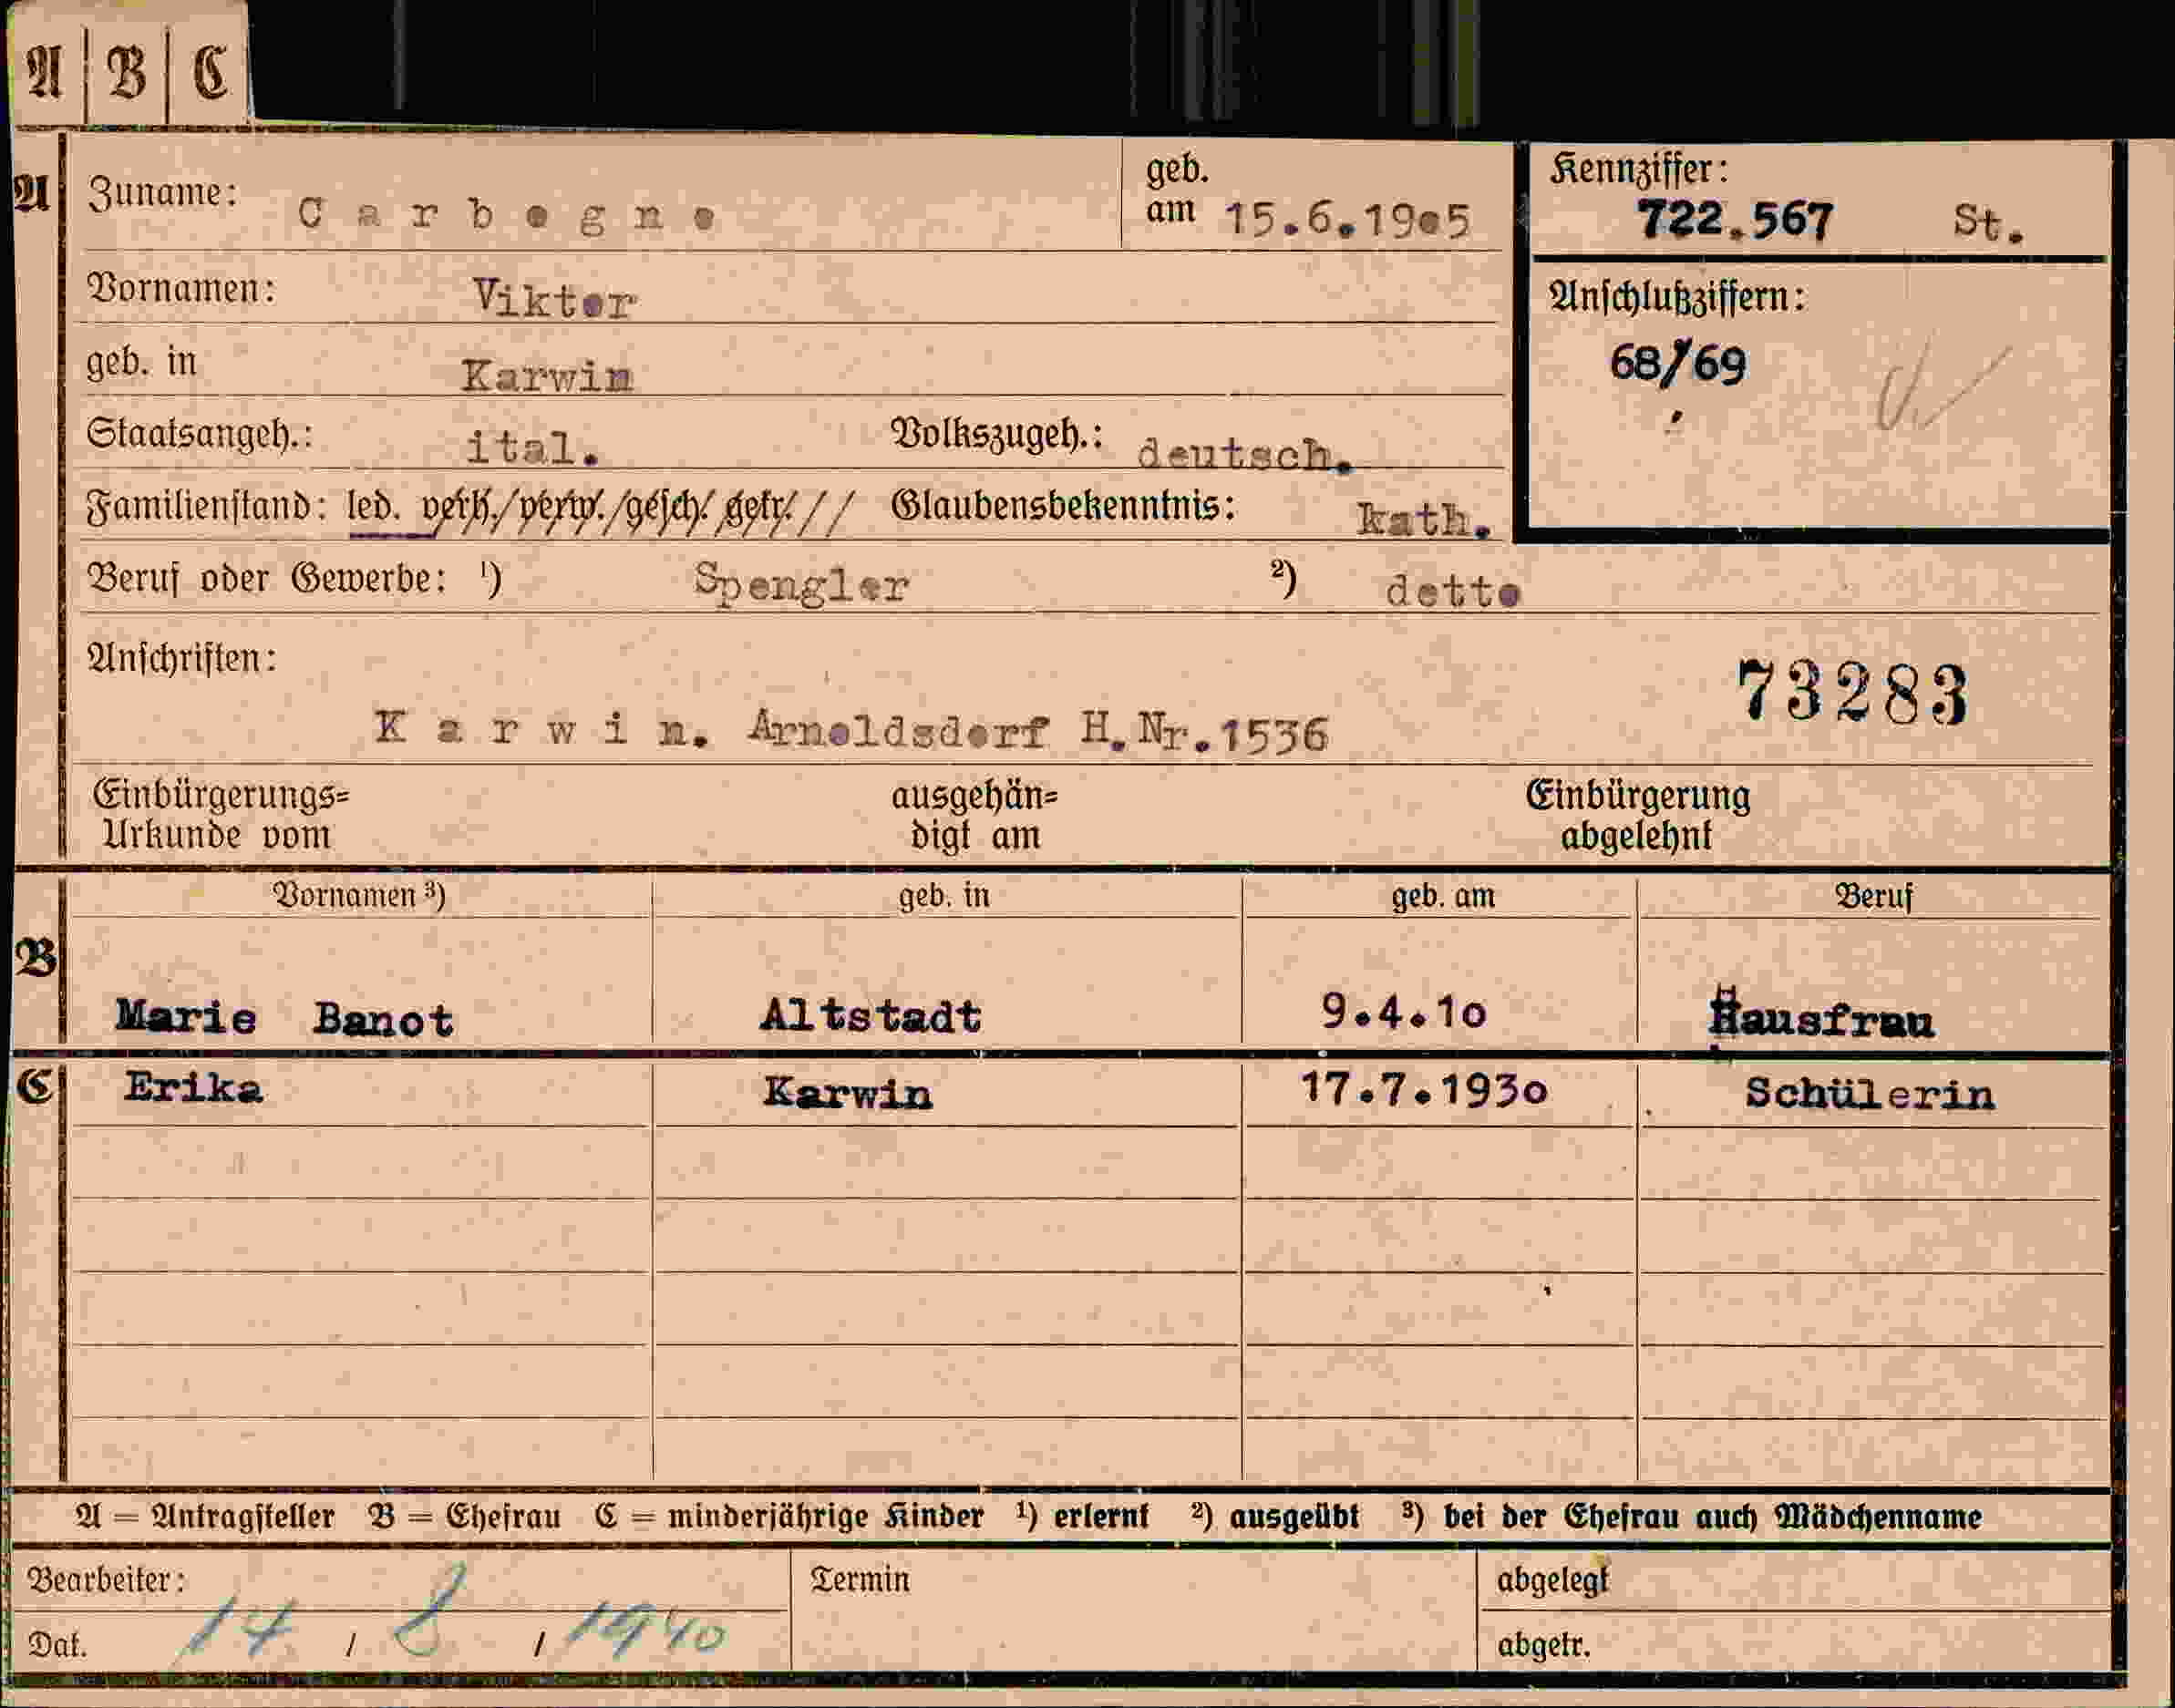 A | B | C
A Zuname: Carbogno geb. am 15.6.1905 Kennziffer: 722.567 St.
Vornamen: Viktor
Anschlußziffern: 68/69
geb. in Karwin
Staatsangeh.: ital. Volkszugeh.: deutsch.
Familienstand: led. verh./verw./gesch./getr./ / Glaubensbekenntnis: kath.
Beruf oder Gewerbe: ¹) Spengler ²) detto
Anschriften:
73283
Karwin. Arnoldsdorf H.Nr.1536
Einbürgerungs= ausgehän= Einbürgerung
Urkunde vom digt am abgelehnt
Vornamen ³) geb. in geb. am Beruf
B
Marie Banot Altstadt 9.4.10 Hausfrau
C Erika Karwin 17.7.1930 Schülerin
A = Antragsteller B = Ehefrau C = minderjährige Kinder ¹) erlernt ²) ausgeübt ³) bei der Ehefrau auch Mädchenname
Bearbeiter: Termin abgelegt
Dat. 14 / 8 / 1940 abgetr.